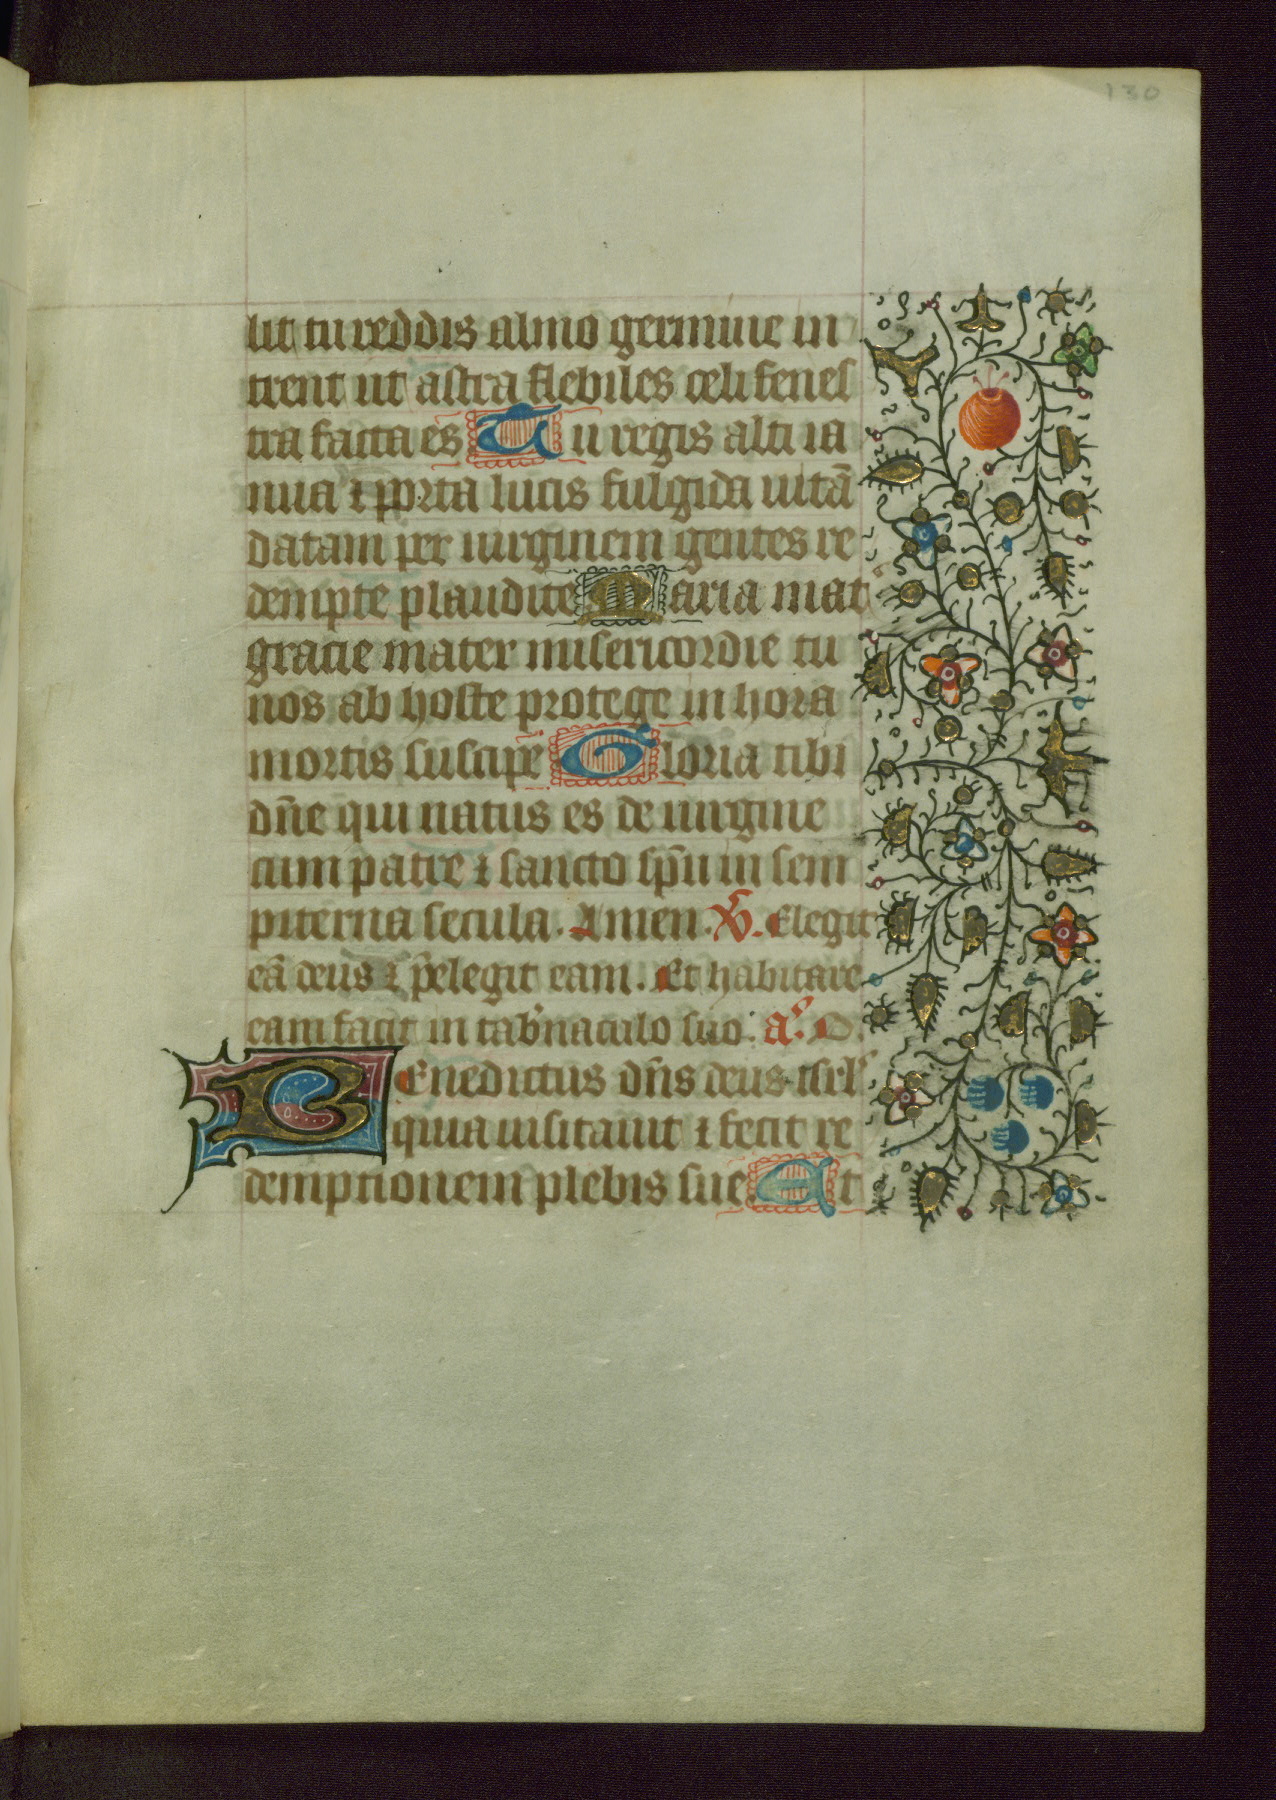 130
lit tu reddis almo germine in
trent ut astra flebiles celi fenes
tra facta es Tu regis alti ia
nua ⁊ porta lucis fulgida uitā
datam per uirginem gentes re
dempte plaudite Maria mat
gracie mater misericordie tu
nos ab hoste protege in hora
mortis suscipe Gloria tibi
dn̄e qui natus es de uirgine
cum patre ⁊ sancto sp̄u in sem
piterna secula. Amen. V̄. Elegit
eā deus ⁊ p̄elegit eam. Et habitare
eam facit in tab̄naculo suo. a. O.
Benedictus dn̄s deus isrl
quia uisitauit ⁊ fecit re
demptionem plebis sue Et